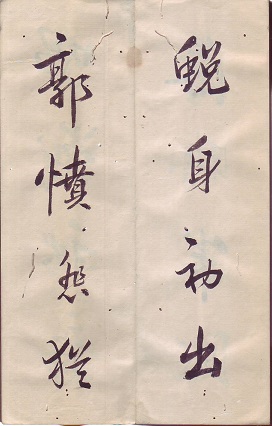 蛻身初出
郭憤怨猶